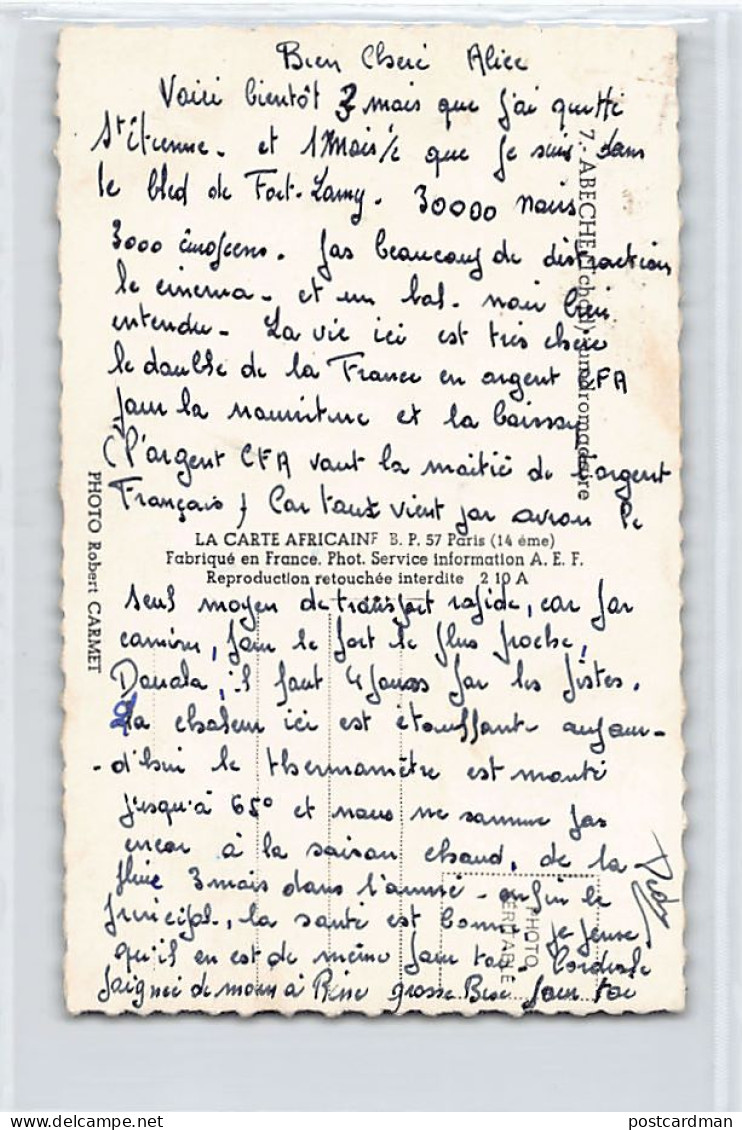 Bien Cheri Alice
Voici bientôt 3 mois que j'ai quitté
St Étienne. et 1 Mois ½ que je suis dans
le bled de Fort-Lamy. 30000 noirs
3000 . Pas beaucoup de distraction
le cinema. et un bal. noir bien
entendu. La vie ici est très chere
le double de la France en argent CFA
pour la nourriture et la boisson
(l'argent CFA vaut la moitié de l'argent
Français) Car tout vient par avion le
LA CARTE AFRICAINE B. P. 57 Paris (14 éme)
Fabriqué en France. Phot. Service information A. E. F.
Reproduction retouchée interdite 2 10 A
seul moyen de transport rapide, car par
camion, pour le port le plus proche,
Douala, il faut 4 jours par les pistes.
la chaleur ici est étouffante aujour-
-d'hui le thermomètre est monté
jusqu'à 65° et nous ne somme pas
encor à la saison chaud, de la
pluie 3 mois dans l'anné - enfin le
principal, la santé est bonne je pense
qu'il en est de même pour toi. Cordiale
poignée de main à Rene grosse Bise pour toi
7. ABECHE (Tchad) un dromadaire
PHOTO Robert CARMET
PHOTO
VERITABLE
postcardman